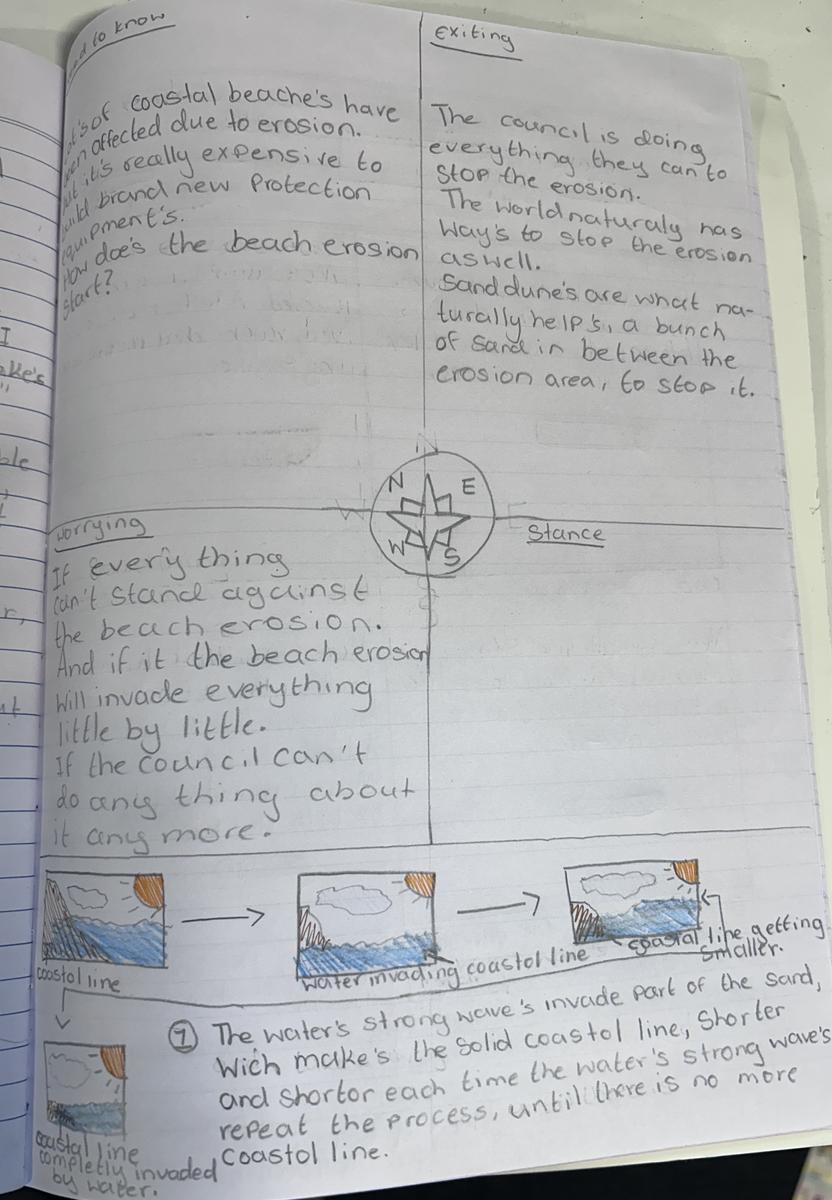 to know
of coastal beache's have
affected due to erosion.
it's really expensive to
brand new Protection
equipment's.
How doe's the beach erosion
start?
Exiting
The council is doing
everything they can to
Stop the erosion.
The world naturaly has
Way's to stop the erosion
aswell.
Sand dune's are what na-
turally help's, a bunch
of sand in between the
erosion area, to stop it.
N
N
E
W
S
W
E
S
Worrying
If every thing
can't stand against
the beach erosion.
And if it the beach erosion
will invade everything
little by little.
If the council can't
do any thing about
it any more.
Stance
coastol line
water invading coastol line
coastal line getting
smaller.
coastal line
completly invaded
by water.
7 The water's strong wave's invade part of the sand,
Wich make's the solid coastol line, Shorter
and shortor each time the water's strong wave's
repeat the process, until there is no more
Coastol line.
I
ake's
ble
r,